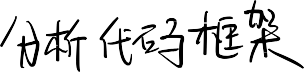 分析代码框架